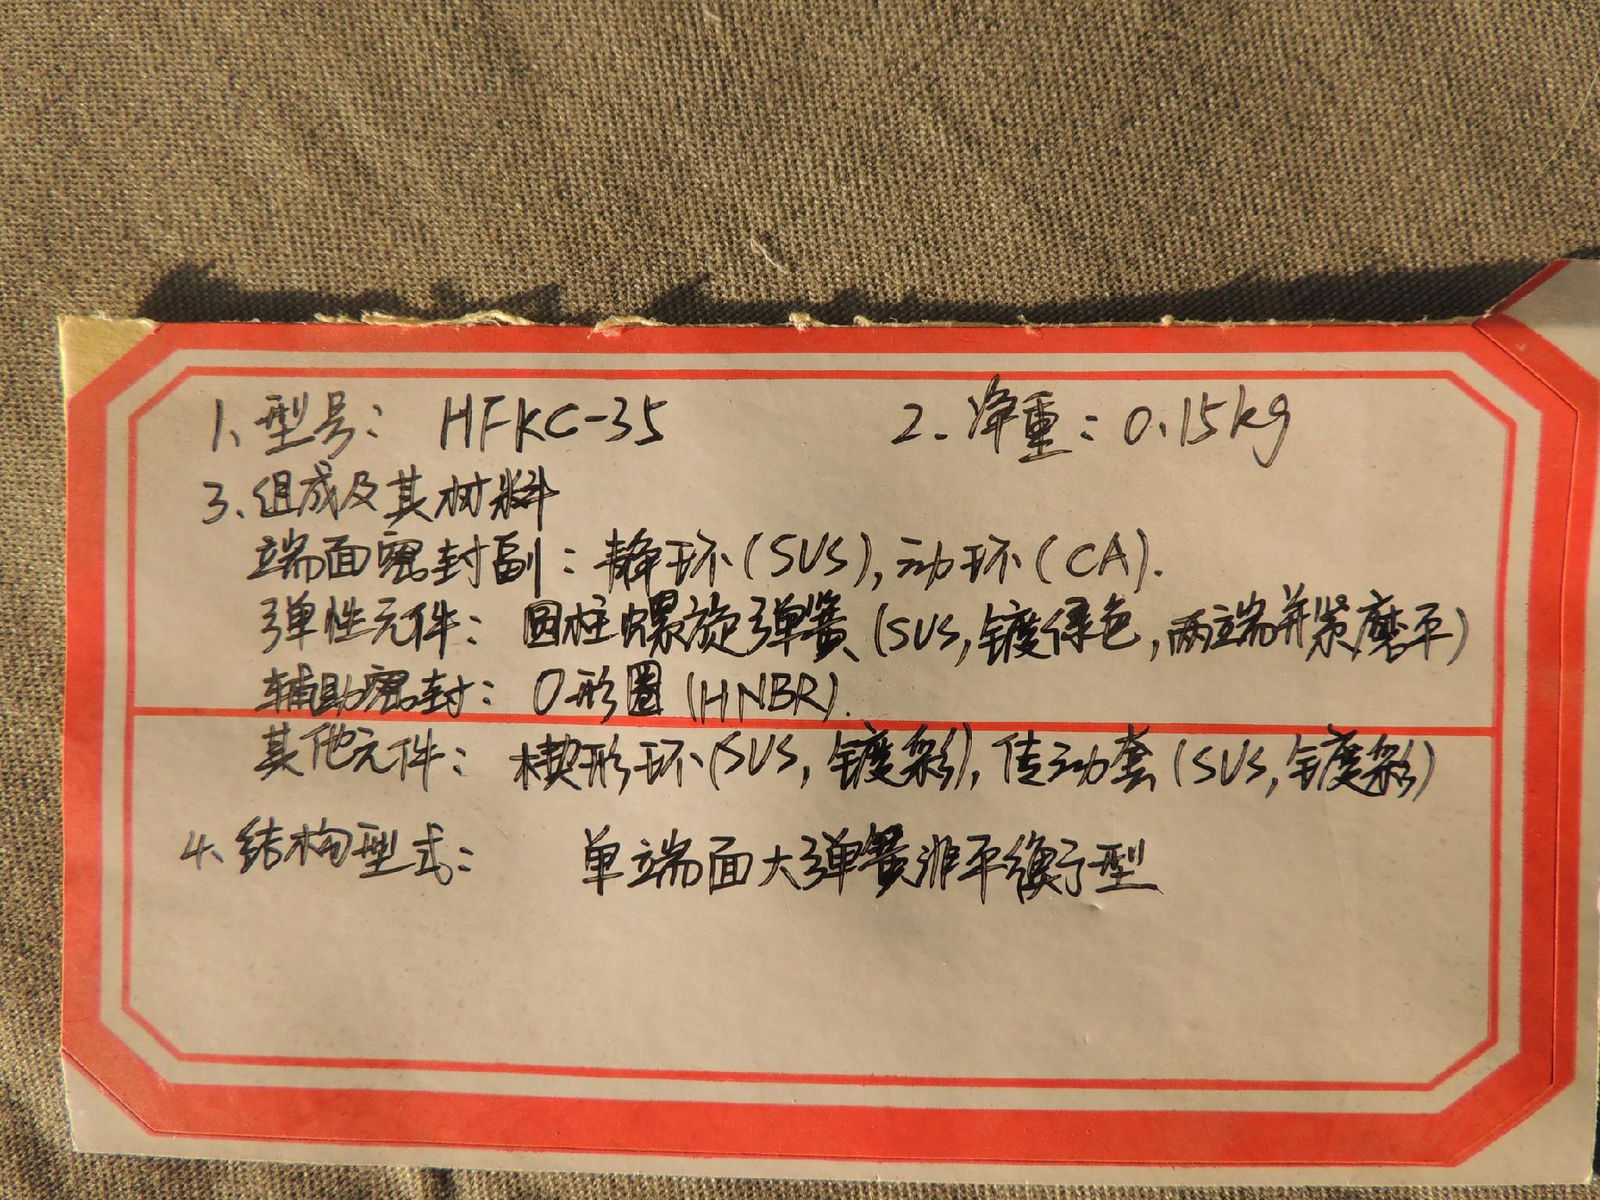 1、型号: HFKC-35 2. 净重: 0.15kg
3、组成及其材料
端面密封副: 静环(SUS), 动环(CA).
弹性元件: 圆柱螺旋弹簧(SUS, 镀绿色, 两端并紧磨平)
辅助密封: O形圈(HNBR).
其他元件: 楔形环(SUS, 镀彩), 传动套(SUS, 镀彩)
4、结构型式: 单端面大弹簧非平衡型